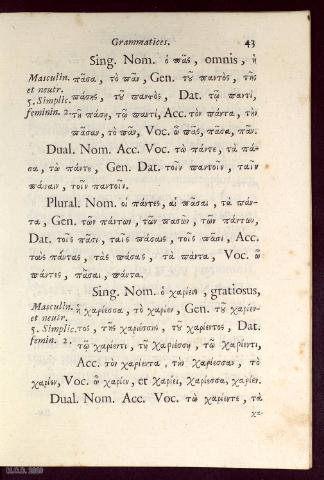 Grammatices. 43
Sing. Nom. ὁ πᾶς, omnis, ἡ
Masculin. πᾶσα, τὸ πᾶν, Gen. τοῦ παντὸς, τῆς
et neutr.
5. Simplic. πάσης, τοῦ παντὸς, Dat. τῷ παντὶ,
feminin. 2. τῇ πάσῃ, τῷ παντὶ, Acc. τὸν πάντα, τὴν
πᾶσαν, τὸ πᾶν, Voc. ὦ πᾶς, πᾶσα, πᾶν.
Dual. Nom. Acc. Voc. τὼ πάντε, τὰ πά-
σα, τὼ πάντε, Gen. Dat. τοῖν παντοῖν, ταῖν
πάσαιν, τοῖν παντοῖν.
Plural. Nom. οἱ πάντες, αἱ πᾶσαι, τὰ πάν-
τα, Gen. τῶν πάντων, τῶν πασῶν, τῶν πάντων,
Dat. τοῖς πᾶσι, ταῖς πάσαις, τοῖς πᾶσι, Acc.
τοὺς πάντας, τὰς πάσας, τὰ πάντα, Voc. ὦ
πάντες, πᾶσαι, πάντα.
Sing. Nom. ὁ χαρίεις, gratiosus,
Masculin. ἡ χαρίεσσα, τὸ χαρίεν, Gen. τοῦ χαρίεν-
et neutr.
5. Simplic. τος, τῆς χαριέσσης, τοῦ χαρίεντος, Dat.
femin. 2. τῷ χαρίεντι, τῇ χαριέσσῃ, τῷ χαρίεντι,
Acc. τὸν χαρίεντα, τὴν χαρίεσσαν, τὸ
χαρίεν, Voc. ὦ χαρίεν, et χαρίει, χαρίεσσα, χαρίεν.
Dual. Nom. Acc. Voc. τὼ χαρίεντε, τὰ
χα-